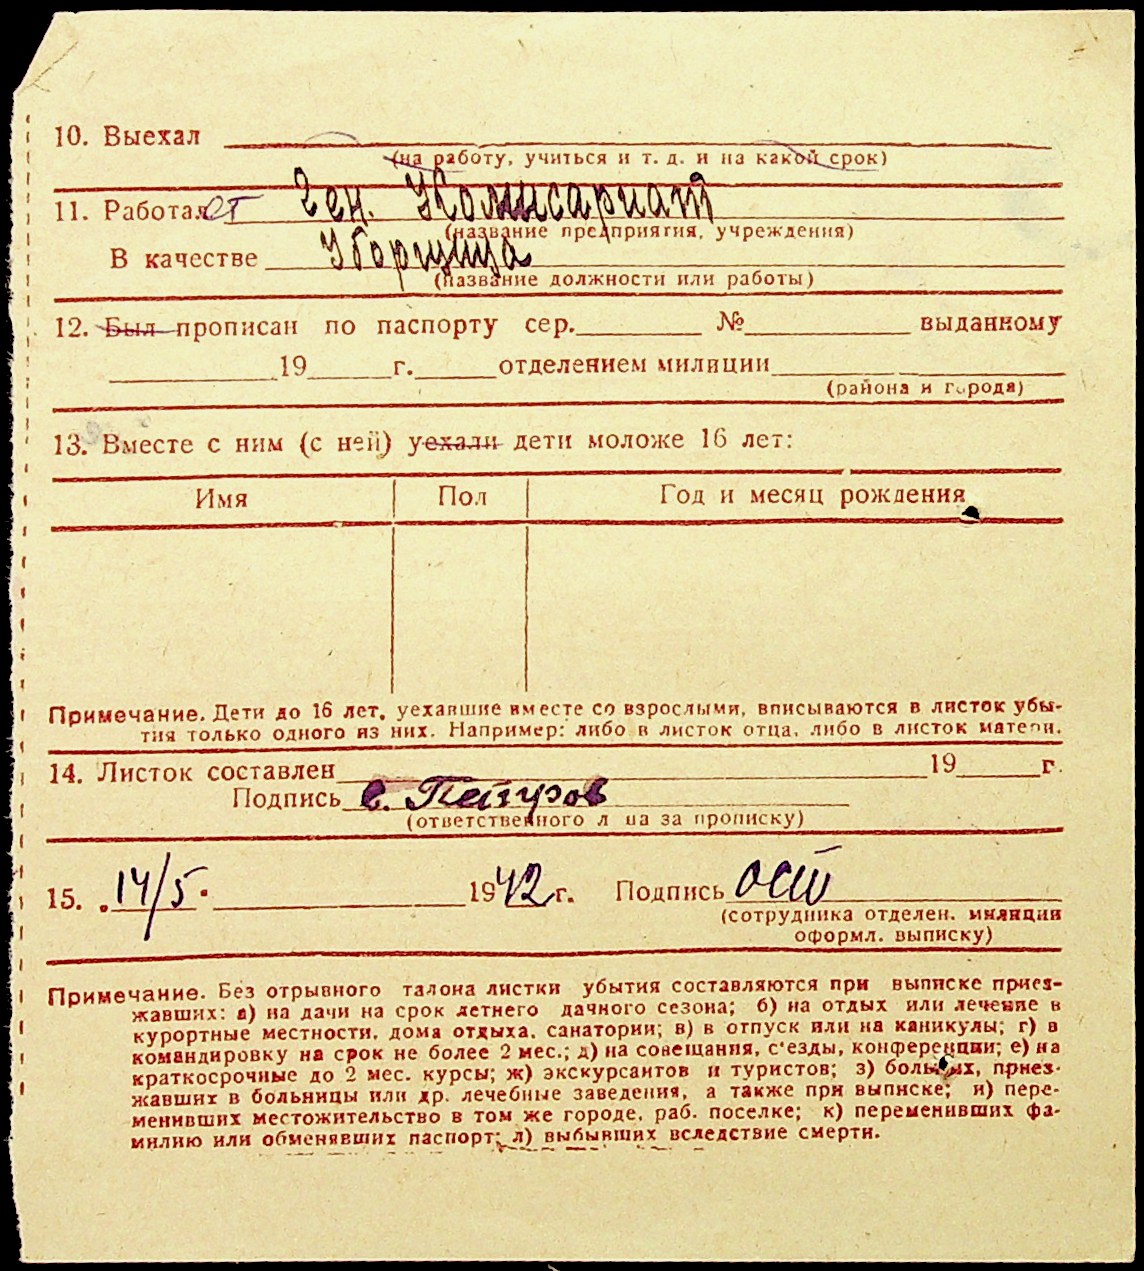 10. Выехал
(на работу, учиться и т. д. и на какой срок)
11. Работает Ген. Комисариат
(название предприятия, учреждения)
В качестве Уборщица
(название должности или работы)
12. Был прописан по паспорту сер. № выданному
19 г. отделением милиции
(района и города)
13. Вместе с ним (с ней) уехали дети моложе 16 лет:
Имя Пол Год и месяц рождения
Примечание. Дети до 16 лет, уехавшие вместе со взрослыми, вписываются в листок убы-
тия только одного из них. Например: либо в листок отца, либо в листок матери.
14. Листок составлен 19 г.
Подпись с. Петров
(ответственного л на за прописку)
15. 14/5. 1942 г. Подпись
(сотрудника отделен. милиции
оформл. выписку)
Примечание. Без отрывного талона листки убытия составляются при выписке приез-
жавших: а) на дачи на срок летнего дачного сезона; б) на отдых или лечение в
курортные местности, дома отдыха, санатории; в) в отпуск или на каникулы; г) в
командировку на срок не более 2 мес.; д) на совещания, с'езды, конференции; е) на
краткосрочные до 2 мес. курсы; ж) экскурсантов и туристов; з) больных, приез-
жавших в больницы или др. лечебные заведения, а также при выписке; и) пере-
менивших местожительство в том же городе, раб. поселке; к) переменивших фа-
милию или обменявших паспорт; л) выбывших вследствие смерти.